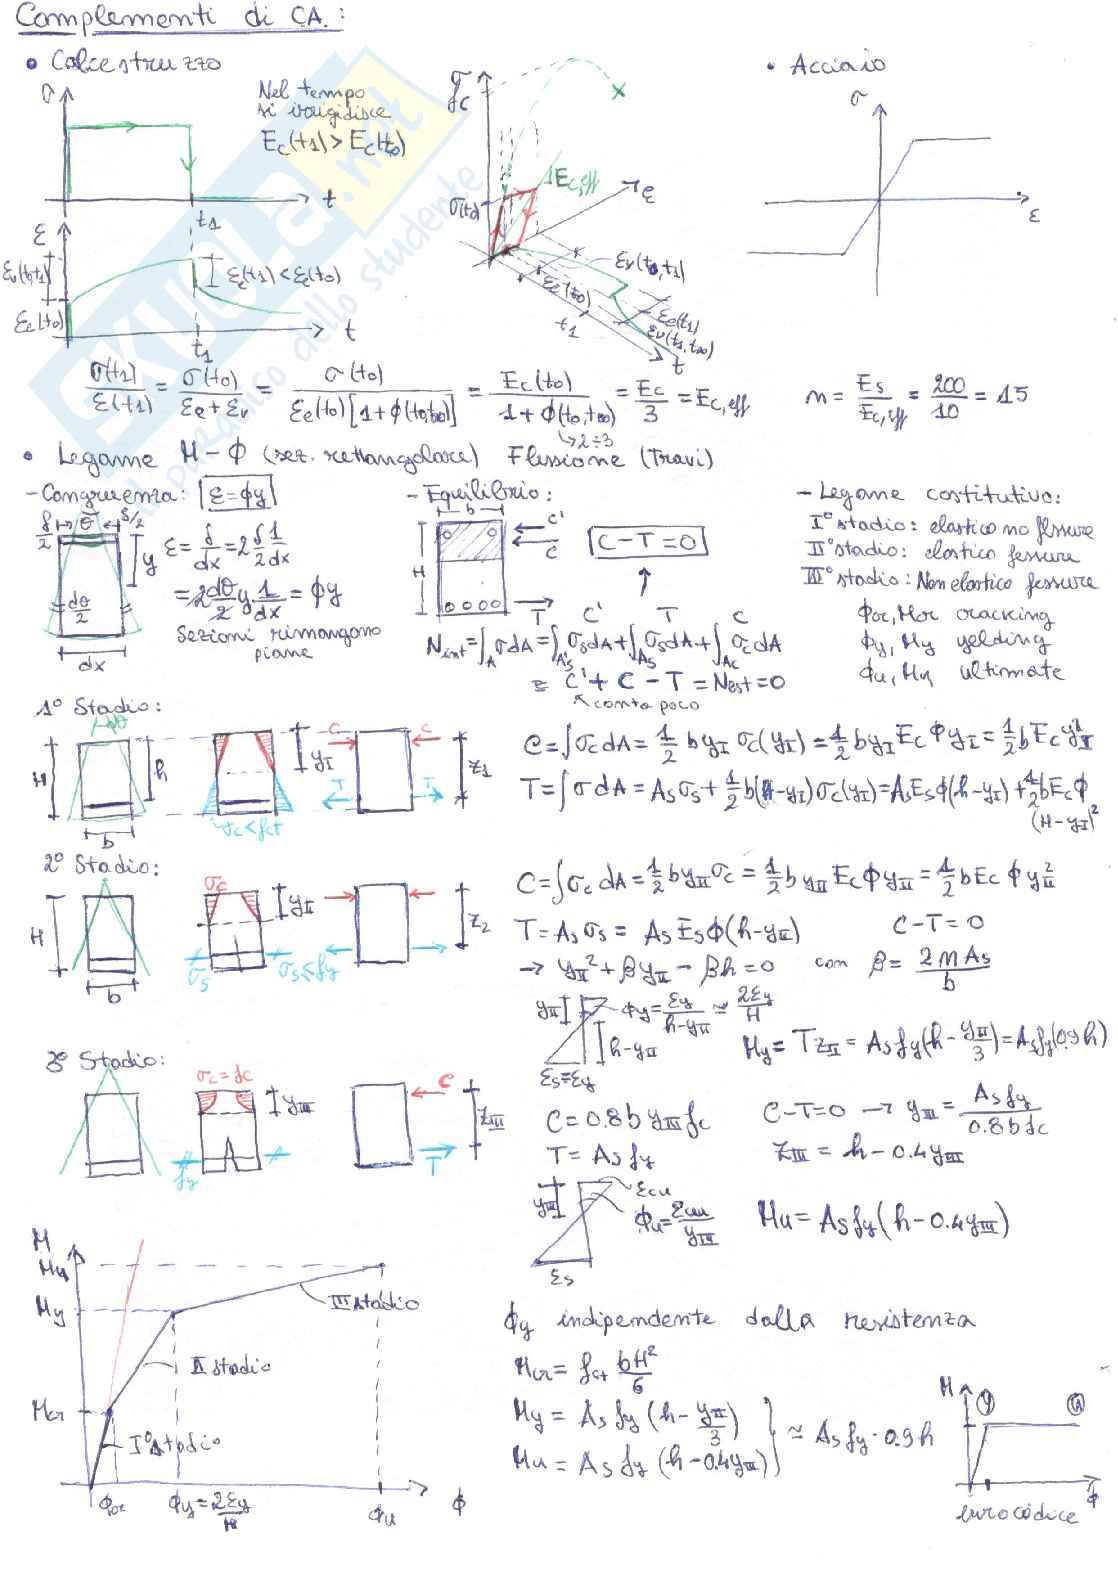 Complementi di CA.:
• Calcestruzzo
• Acciaio
σ
Nel tempo
si irrigidisce
Ec(t1) > Ec(t0)
t
t1
σ
fc
σ(t0)
Ec,eff
ε
εv(t0,t1)
εe(t0)
t1
εe(t1)
εv(t1,t∞)
t
σ
ε
ε
εv(t0,t1)
εe(t0)
εe(t1) < εe(t0)
t1
t
σ(t1)/ε(t1) = σ(t0)/(εe+εv) = σ(t0)/(εe(t0)[1+ϕ(t0,t∞)]) = Ec(t0)/(1+ϕ(t0,t∞)) = Ec/3 = Ec,eff
↳2÷3
m = Es/Ec,eff = 200/10 = 15
• Legame M-ϕ (sez. rettangolare) Flessione (Travi)
- Congruenza: ε=ϕy
δ/2 θ δ/2
y
dθ/2
dx
ε = δ/dx = 2 δ/2 1/dx
= 2 dθ/2 y 1/dx = ϕy
Sezioni rimangono
piane
- Equilibrio:
b
H
C'
C
T
C-T=0
C' T C
Nint = ∫A σdA = ∫A's σsdA + ∫As σsdA + ∫Ac σcdA
= C' + C - T = Nest = 0
↖conta poco
- Legame costitutivo:
I° stadio: elastico no fessure
II° stadio: elastico fessure
III° stadio: Non elastico fessure
ϕcr, Mcr cracking
ϕy, My yelding
ϕu, Mu ultimate
1° Stadio:
dθ
H
h
b
yI
σc<fct
C C
T T
z1
C = ∫σc dA = 1/2 b yI σc(yI) = 1/2 b yI Ec ϕ yI = 1/2 b Ec yI²
T = ∫σ dA = As σs + 1/2 b(H-yI) σc(yI) = As Es ϕ(h-yI) + 1/2 b Ec ϕ
(H-yI)²
2° Stadio:
H
b
σc
yII
σs
σs≤fy
z2
C = ∫σc dA = 1/2 b yII σc = 1/2 b yII Ec ϕ yII = 1/2 b Ec ϕ yII²
T = As σs = As Es ϕ(h-yII)
C-T=0
→ yII² + β yII - βh = 0 con β = 2mAs/b
yII
h-yII
εs=εy
ϕy = εy/(h-yII) ≃ 2εy/H
My = T zII = As fy(h - yII/3) = As fy(0.9h)
3° Stadio:
σc=fc
yIII
fy
C
T
zIII
C = 0.8 b yIII fc
T = As fy
C-T=0 → yIII = As fy/(0.8 b fc)
zIII = h - 0.4 yIII
yIII
εcu
εs
ϕu = εcu/yIII
Mu = As fy(h - 0.4 yIII)
M
Mu
My
Mcr
III stadio
II stadio
I° stadio
ϕcr
ϕy = 2εy/H
ϕu
ϕ
ϕy indipendente dalla resistenza
Mcr = fct bH²/6
My = As fy (h - yII/3)
Mu = As fy (h - 0.4yIII)
≃ As fy · 0.9h
M
y
u
ϕ
eurocodice